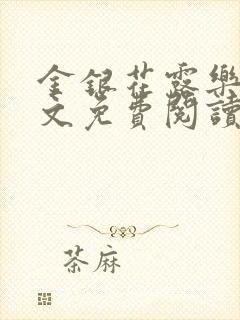 金銀花露樂
文免費閱讀
茶麻